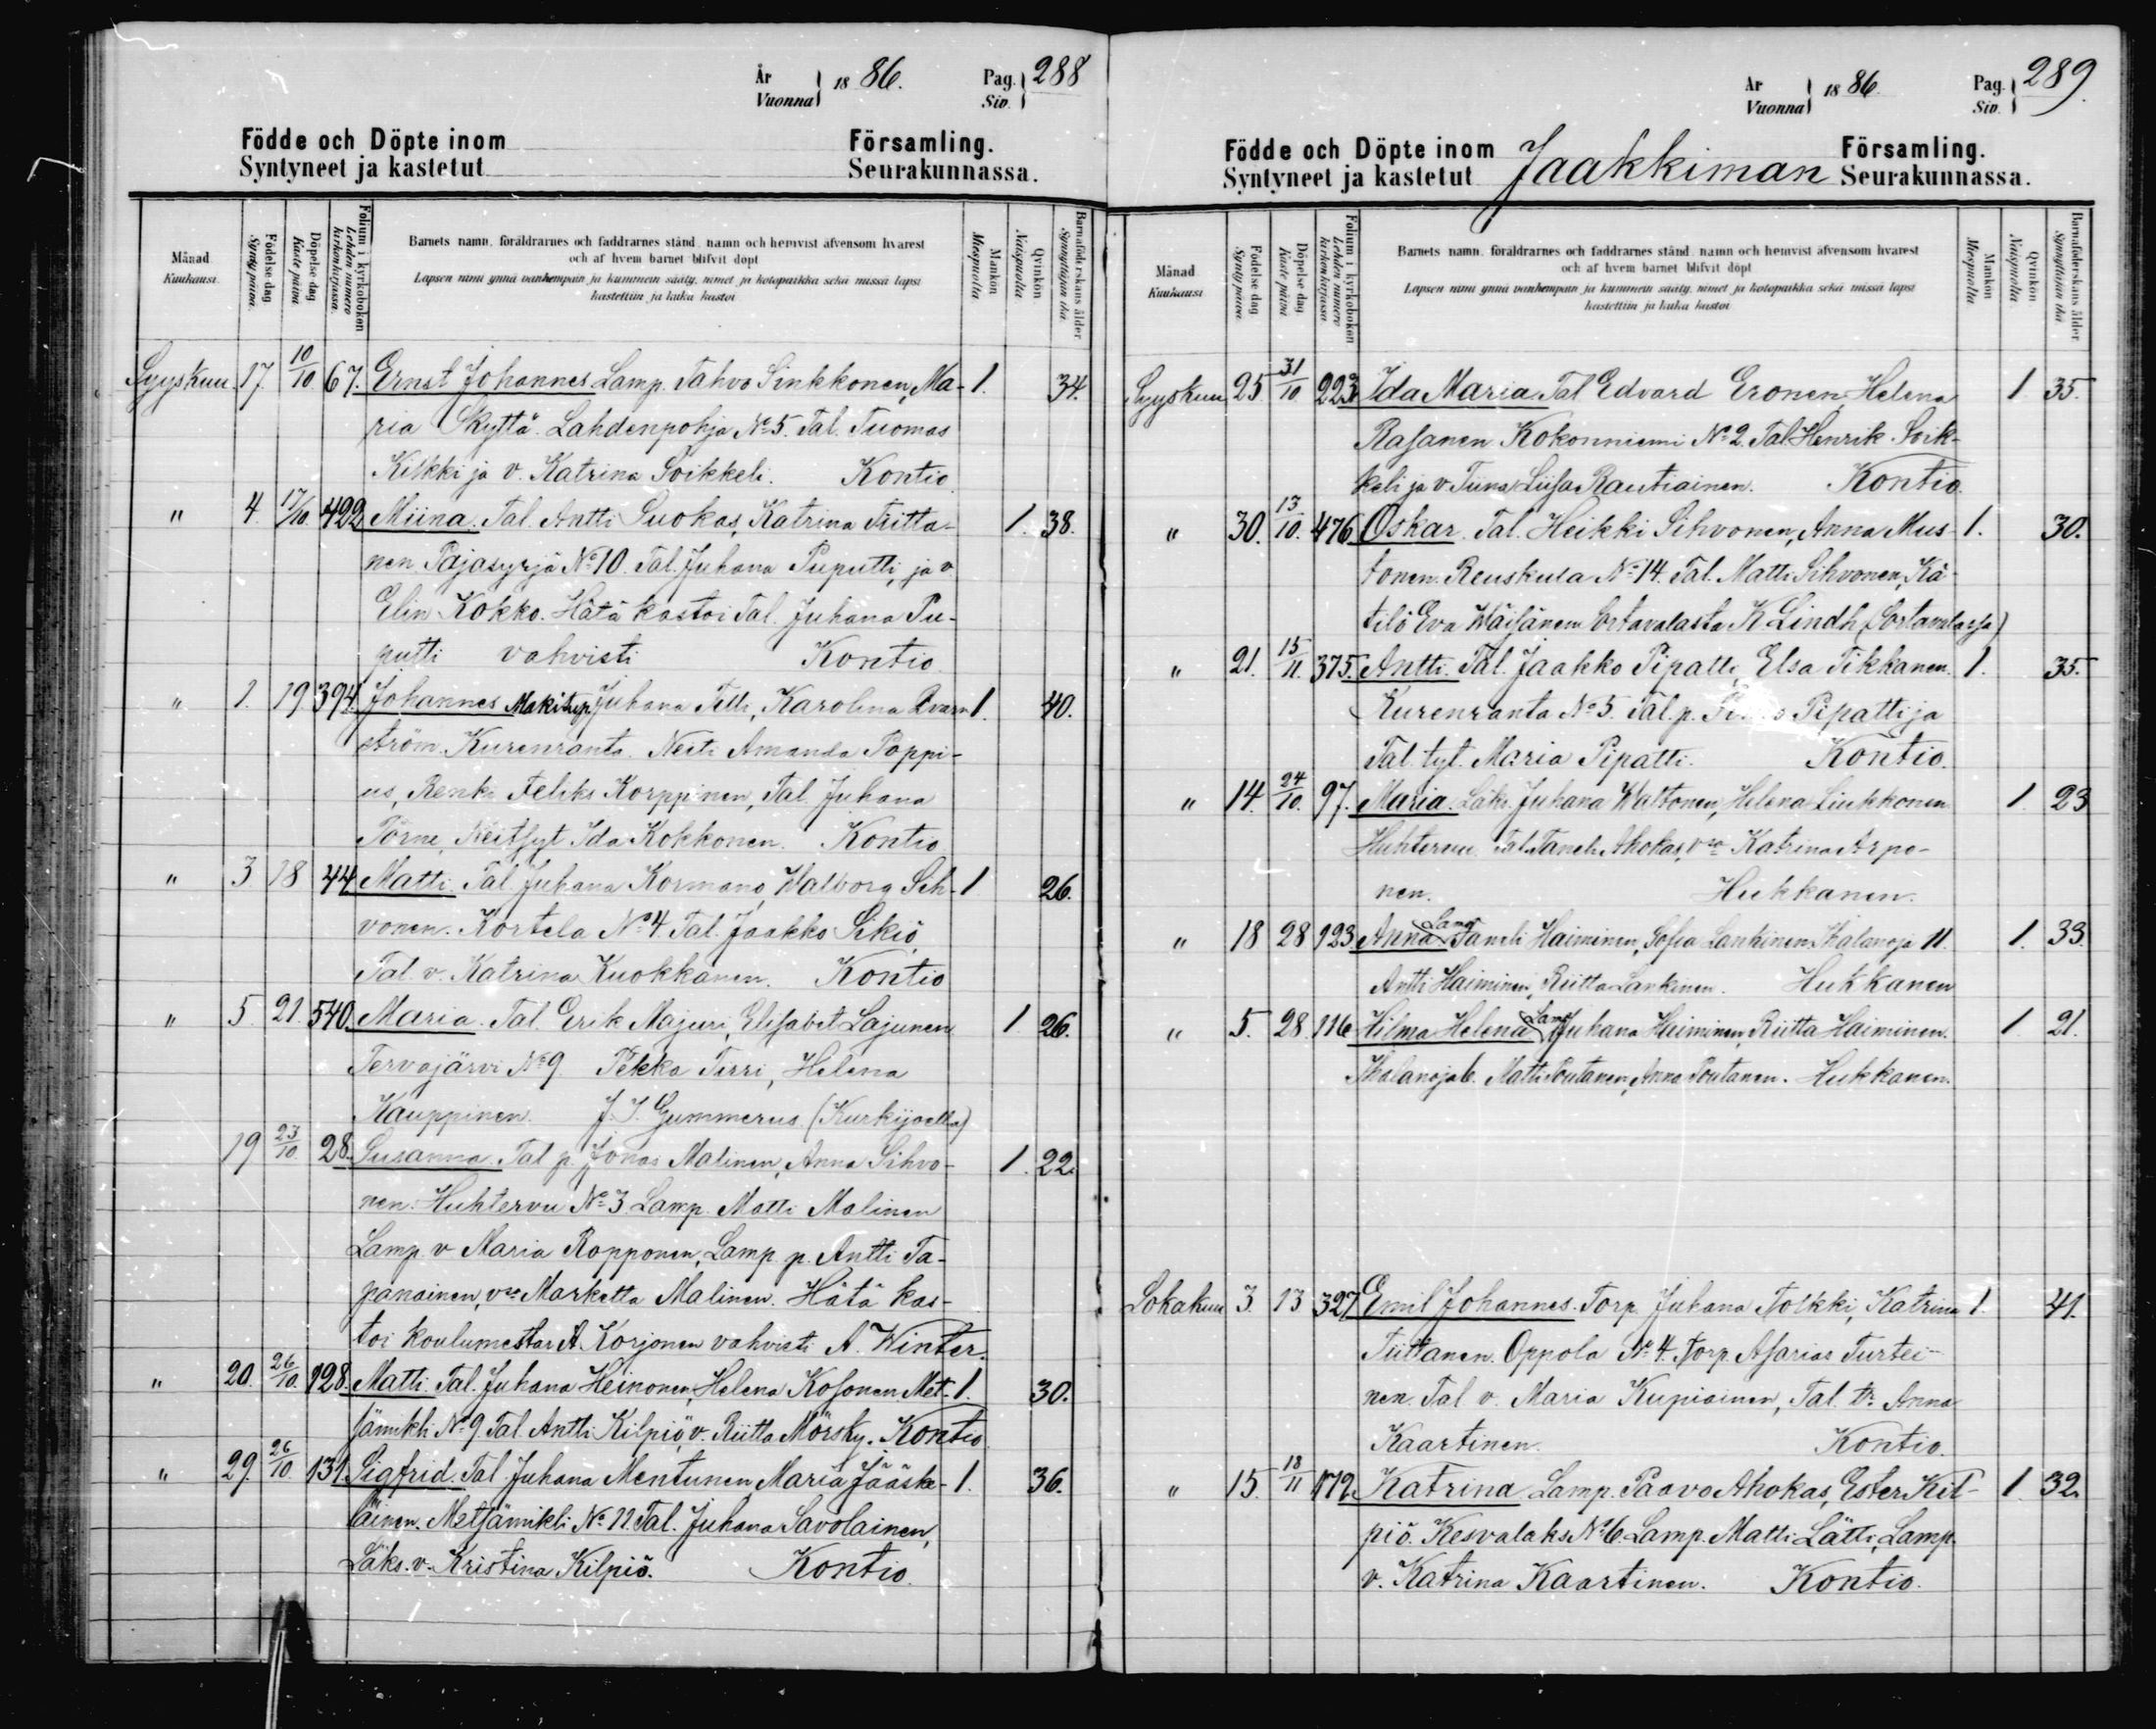 År
Vuonna 1886. Pag. Siv. 288
Födde och Döpte inom Församling.
Syntyneet ja kastetut Seurakunnassa.
Månad Kuukausi. Födelse dag Synty päivä. Döpelse dag Kaste päivä. Folium i kyrkoboken Lehden numero kirkonkirjassa. Barnets namn, föräldrarnes och faddrarnes stånd, namn och hemvist äfvensom hvarest
och af hvem barnet blifvit döpt
Lapsen nimi ynnä vanhempain ja kummein sääty, nimet ja kotopaikka sekä missä lapsi
kastettiin ja kuka kastoi
Mankön Miespuolta. Qvinkön Naispuolta. Barnaföderskans ålder Synnyttäjän ikä
Syyskuu. 17. 10/10. 67. Ernst Johannes Lamp. Tahvo Sinkkonen, Ma- 1. 34.
ria Skyttä. Lahdenpohja No 5. Tal. Tuomas
Kilkki ja v. Katrina Soikkeli. Kontio.
" 4. 17/10. 422 Miina. Tal. Antti Suokas, Katrina Tritta- 1. 38.
nen Pajasyrjä No 10. Tal. Juhana Puputti, ja v.
Elin Kokko. Hätä kastoi Tal. Juhana Pu-
putti vahvisti Kontio.
" 1. 19 394. Johannes Mäkitup. Juhana Telli, Karolina Qvarn- 1. 40.
ström Kurenranta. Neiti Amanda Poppi-
us, Renki Feliks Korppinen, Tal. Juhana
Törne, Neitsyt Ida Kokkonen. Kontio
" 3 18 44 Matti. Tal. Juhana Kormano, Walborg Sih- 1 26.
vonen. Kortela No 4. Tal. Jaakko Sikiö,
Tal. v. Katrina Kuokkanen. Kontio
" 5. 21. 540. Maria. Tal. Erik Majuri, Elisabet Lajunen 1. 26.
Tervajärvi No 9. Pekka Tirri, Helena
Kauppinen. J. I. Gummerus (Kurkijoella)
19 23/10. 28. Susanna. Tal. p. Jonas Malinen, Anna Sihvo- 1. 22.
nen. Huhtervu No 3 Lamp. Matti Malinen
Lamp. v Maria Ropponen, Lamp. p. Antti Ta-
panainen, vmo Marketta Malinen. Hätä kas-
toi koulumestar A. Korjonen vahvisti A. Winter.
" 20. 26/10. 128. Matti. Tal. Juhana Heinonen, Helena Kosonen Met- 1. 30.
sämikli No 9. Tal. Antti Kilpiö, v. Riitta Mörsky. Kontio
" 29. 26/10. 131. Sigfrid. Tal. Juhana Mentunen Maria Jääske- 1. 36.
läinen. Metsämikli No 11. Tal. Juhana Savolainen,
Läks. v. Kristina Kilpiö. Kontio.
År
Vuonna 1886. Pag. Siv. 289.
Födde och Döpte inom Jaakkiman Församling.
Syntyneet ja kastetut Seurakunnassa.
Månad Kuukausi Födelse dag Synty päivä. Döpelse dag Kaste päivä. Folium i kyrkoboken Lehden numero kirkonkirjassa Barnets namn, föräldrarnes och faddrarnes stånd, namn och hemvist äfvensom hvarest
och af hvem barnet blifvit döpt
Lapsen nimi ynnä vanhempain ja kummein sääty, nimet ja kotopaikka sekä missä lapsi
kastettiin ja kuka kastoi
Mankön Miespuolta. Qvinkön Naispuolta. Barnaföderskans ålder Synnyttäjän ikä
Syyskuu 25. 31/10 223. Ida Maria. Tal Edvard Eronen, Helena 1 35.
Rasanen. Kokonniemi No 2. Tal. Henrik Soik-
keli ja v. Tiina Liisa Rautiainen. Kontio.
" 30. 13/10. 476 Oskar. Tal. Heikki Sihvonen, Anna Mus- 1. 30.
tonen. Reuskula No 14. Tal. Matti Sihvonen, Kä-
tilö Eva Wäisänen Sortavalasta K Lindh (Sortavalassa)
" 21. 15/11. 375. Antti. Tal. Jaakko Pipatti, Elsa Tikkanen. 1. 35.
Kurenranta No 5. Tal. p. Pipatti ja
Tal. tyt. Maria Pipatti. Kontio.
" 14. 24/10. 97. Maria. Läks. Juhana Waltonen, Helena Liukkonen 1. 23
Huhtervu. Tal. Taneli Ahokas, vmo Katrina Arpo-
nen. Hukkanen.
" 18 28 123 Anna Lamp Taneli Haiminen, Sofia Lankinen Ihalanoja 11. 1. 33.
Antti Haiminen, Riitta Lankinen. Hukkanen
" 5. 28 116 Hilma Helena Lamp Juhana Haiminen, Riitta Haiminen. 1 21.
Ihalanoja 6. Matti Poutanen, Anna Poutanen. Hukkanen.
Lokakuu 3. 13 327 Emil Johannes. Torp. Juhana Tolkki, Katrina 1. 41.
Tiittanen. Oppola No 4. Torp. Asarias Turtei-
nen. Tal v. Maria Kupiainen, Tal. tr. Anna
Kaartinen. Kontio.
" 15. 18/11 172. Katrina Lamp. Paavo Ahokas, Ester Kil- 1 32.
piö. Kesvalaks No 6. Lamp. Matti Lätti, Lamp.
v. Katrina Kaartinen. Kontio.